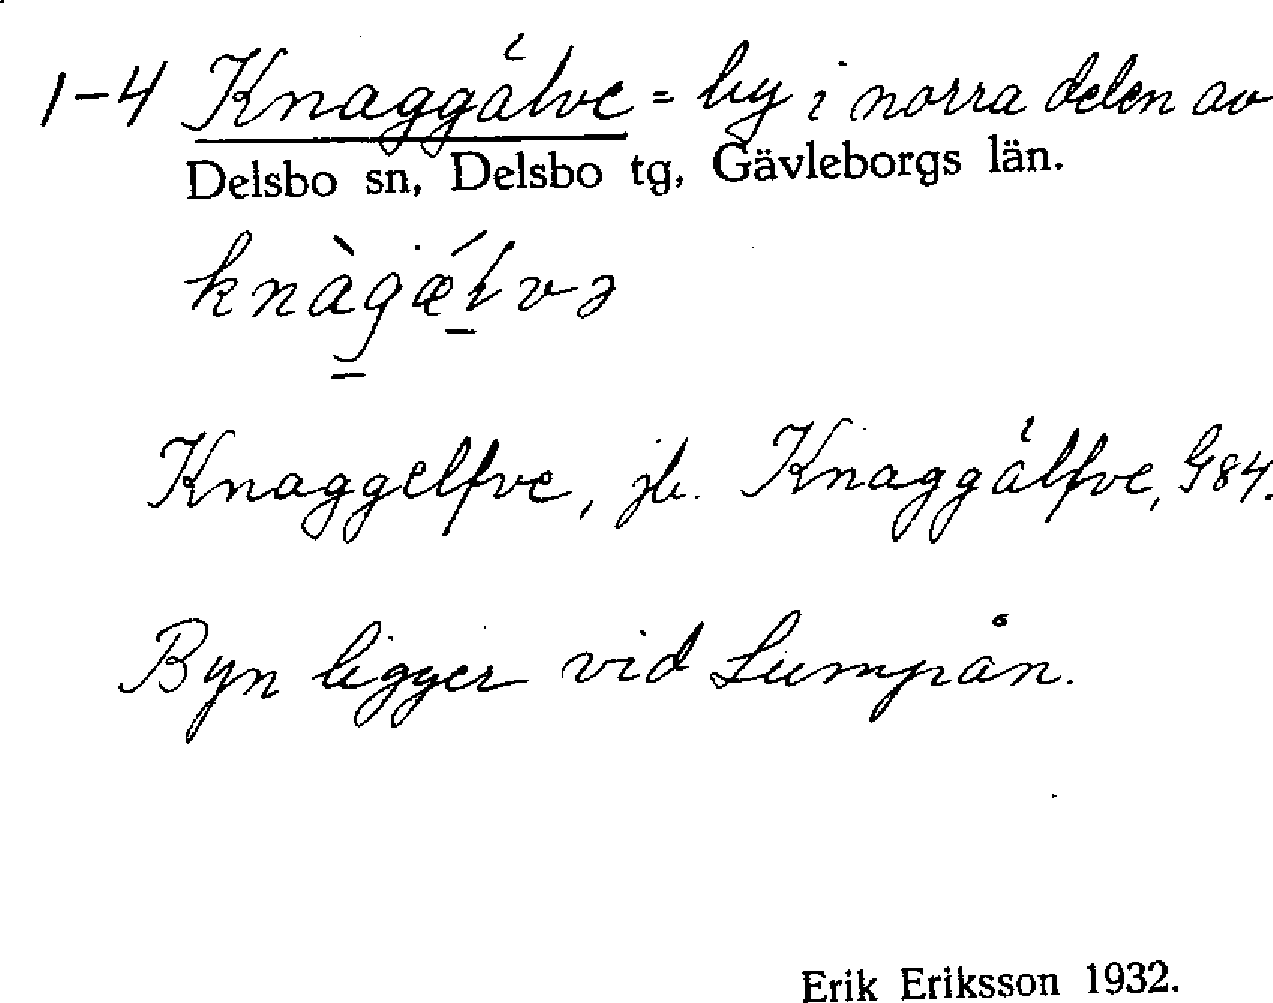 1-4 Knaggälve = by i norra delen av
Delsbo sn, Delsbo tg, Gävleborgs län.
knàgǽlvə
Knaggelfve, jb. Knaggälfve, G84.
Byn ligger vid Lumpån.
Erik Eriksson 1932.